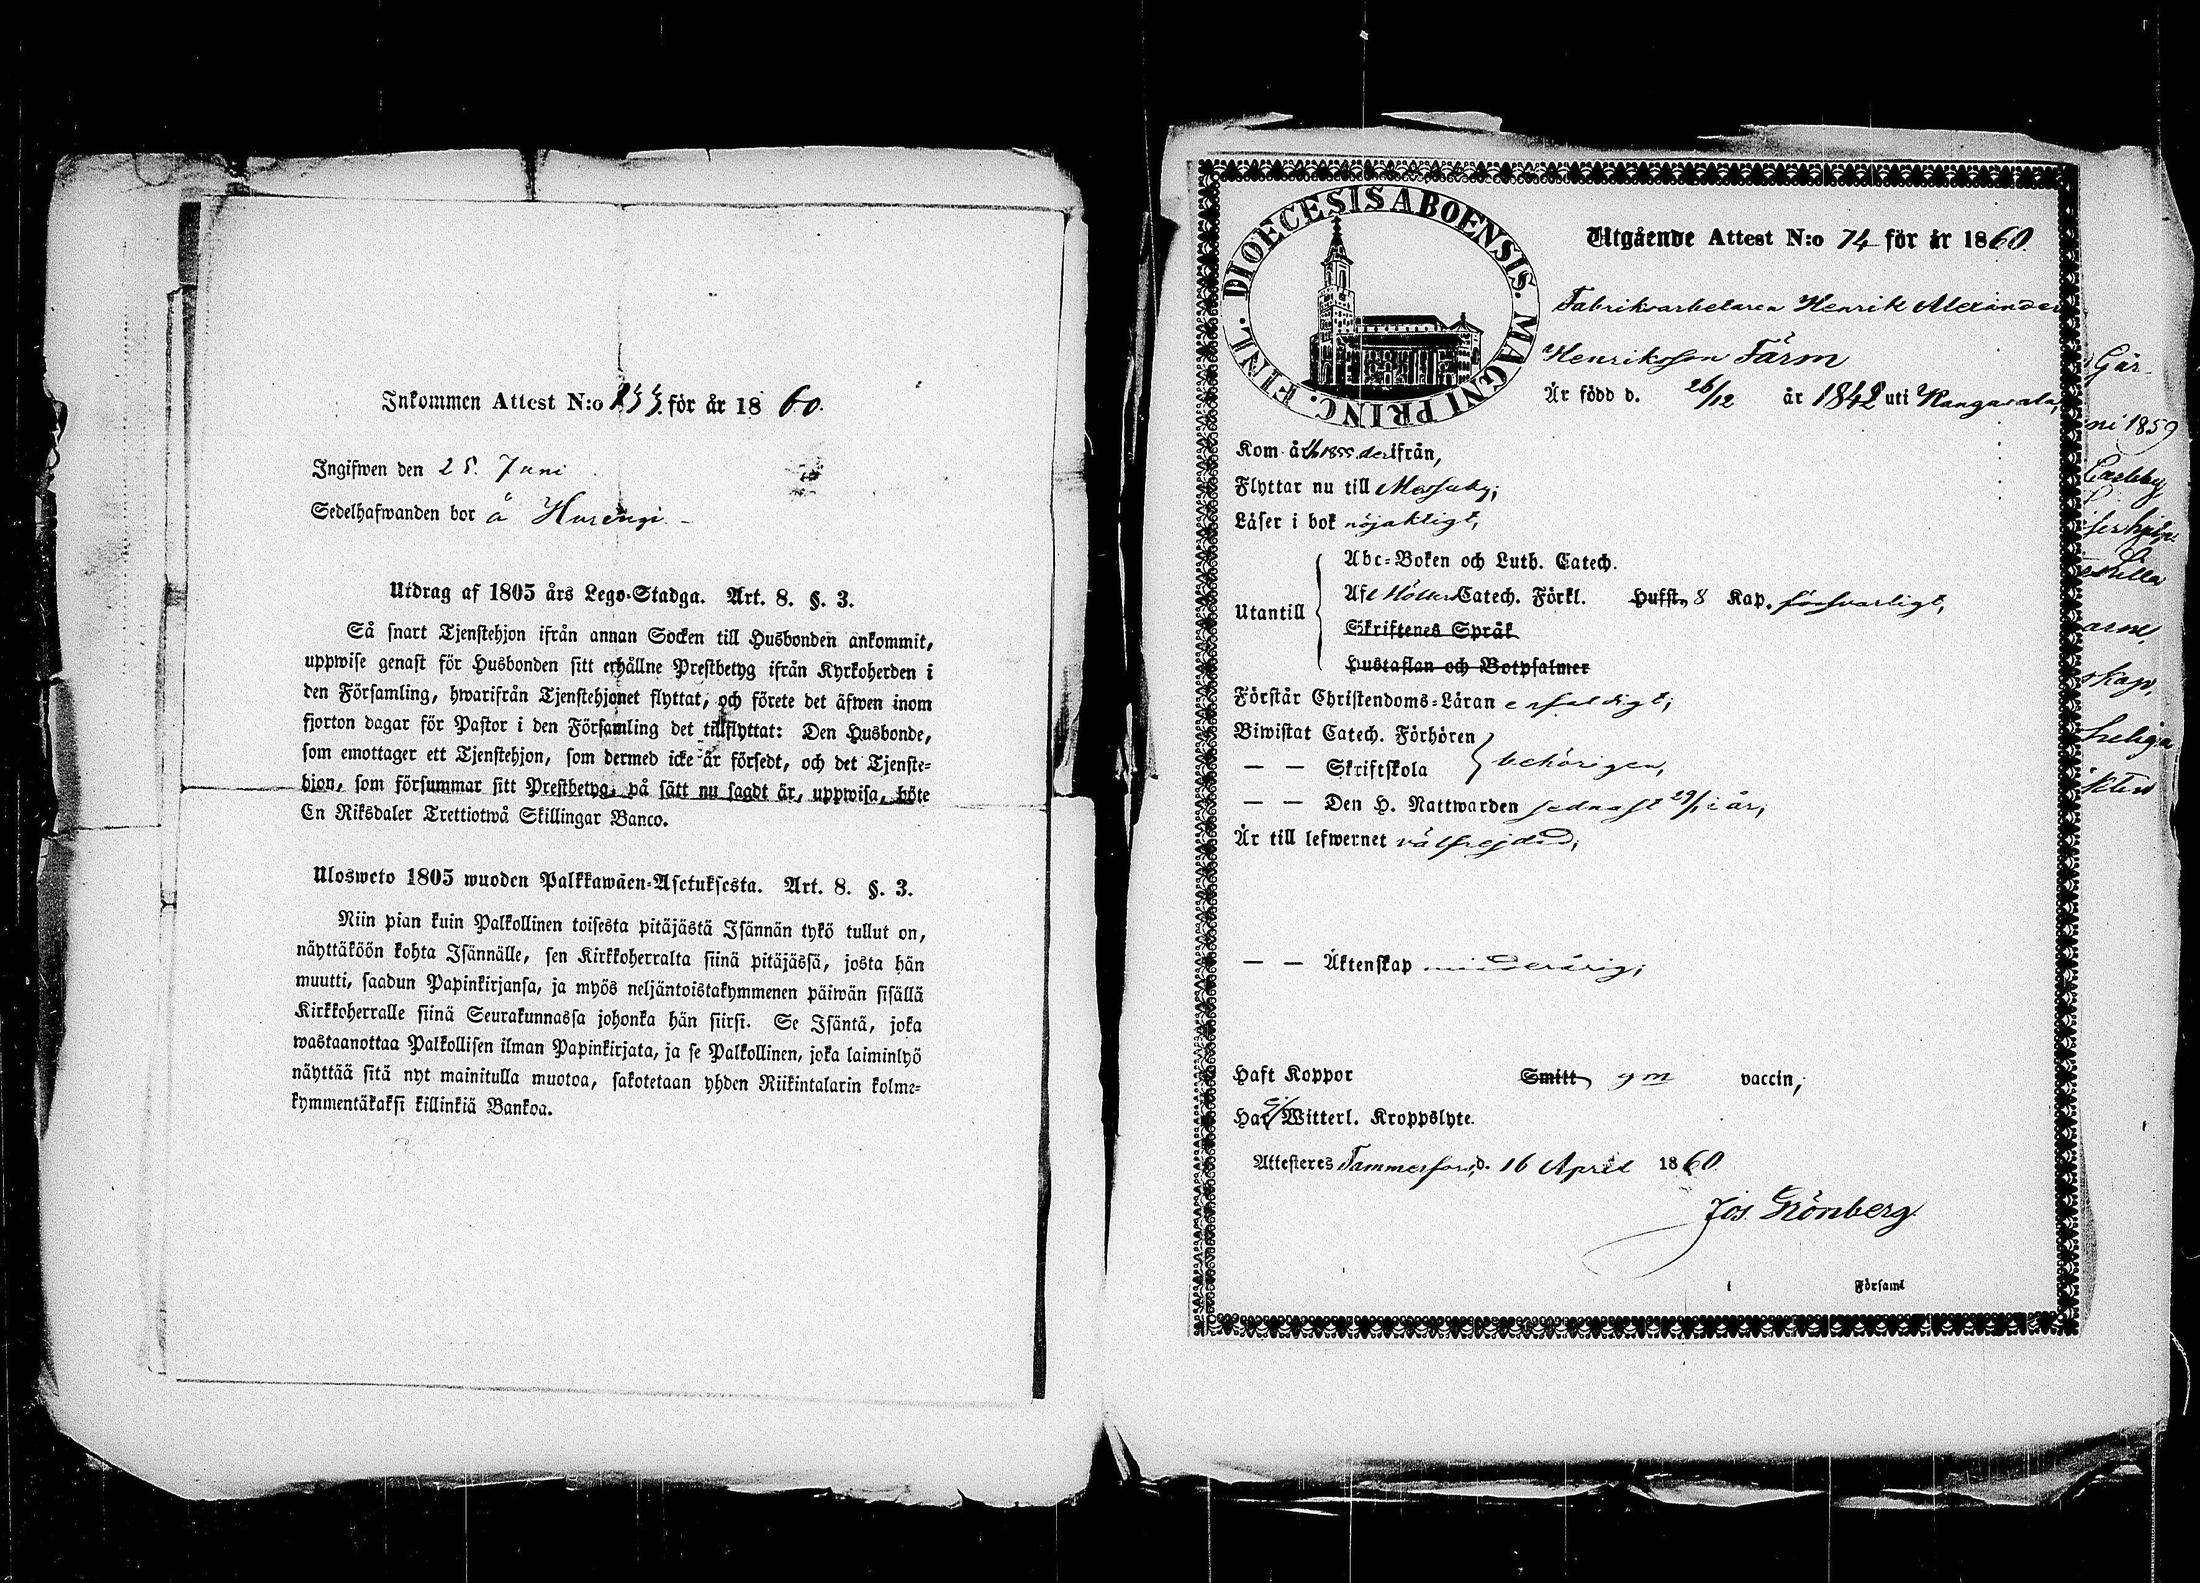 Inkommen Attest N:o 233 för år 1860.
Ingifwen den 25. Juni
Sedelhafwanden bor å Hurengi
Utdrag af 1805 års Lego-Stadga. Art. 8. §. 3.
Så snart Tjenstehjon ifrån annan Socken till Husbonden ankommit,
uppwise genast för Husbonden sitt erhållne Prestbetyg ifrån Kyrkoherden i
den Församling, hwarifrån Tjenstehjonet flyttat, och förete det äfwen inom
fjorton dagar för Pastor i den Församling det tillflyttat: Den Husbonde,
som emottager ett Tjenstehjon, som dermed icke är försedt, och det Tjenste-
hjon, som försummar sitt Prestbetyg, på sätt nu sagdt är, uppwisa, böte
En Riksdaler Trettiotwå Skillingar Banco.
Ulosweto 1805 wuoden Palkkawäen-Asetuksesta. Art. 8. §. 3.
Niin pian kuin Palkollinen toisesta pitäjästä Isännän tykö tullut on,
näyttäköön kohta Isännälle, sen Kirkkoherralta siinä pitäjässä, josta hän
muutti, saadun Papinkirjansa, ja myös neljäntoistakymmenen päiwän sisällä
Kirkkoherralle siinä Seurakunnassa johonka hän siirsi. Se Isäntä, joka
wastaanottaa Palkollisen ilman Papinkirjata, ja se Palkollinen, joka laiminlyö
näyttää sitä nyt mainitulla muotoa, sakotetaan yhden Riikintalarin kolme-
kymmentäkaksi killinkiä Bankoa.
DIOECESIS ABOENSIS. MAGNI PRINC. FINL.
Utgående Attest N:o 74 för år 1860
Fabriksarbetaren Henrik Alexander
Henriksson Färm
Är född d. 26/12 år 1842 uti Kangasala,
Kom år 1855 derifrån,
Flyttar nu till Messuby;
Läser i bok nöjaktigt,
Utantill
Abc-Boken och Luth. Catech.
Af Möllers Catech. Förkl. Hufst. 8 Kap. försvarligt,
Skriftenes Språk
Hustaflan och Botpsalmer
Förstår Christendoms-Läran enfaldigt;
Biwistat Catech. Förhören
— — Skriftskola behörigen,
— — Den H. Nattwarden sednast 29/1 i år;
Är till lefwernet välfrejdad,
— — Äktenskap minderårig;
Haft Koppor Smitt gm vaccin;
Har ej Witterl. Kroppslyte.
Attesteres Tammerfors, d. 16 April 1860
Jos. Grönberg
i Församl
Gär
ni 1859
arne
skap,